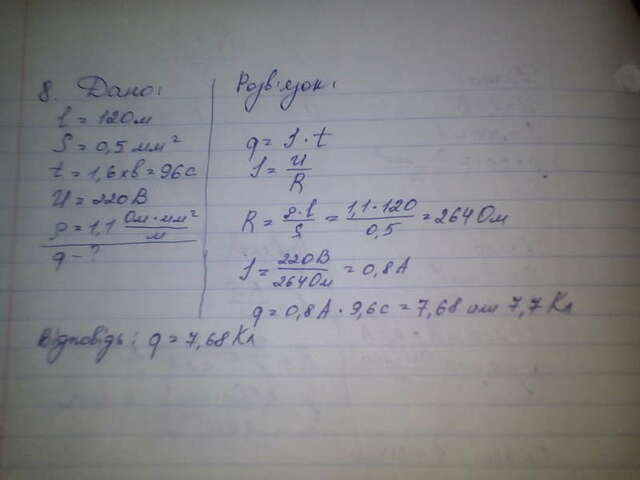 8. Дано:
l = 120м
S = 0,5 мм²
t = 1,6 хв = 96с
U = 220В
ρ = 1,1 Ом · мм² / м
q - ?
Розв'язок:
q = I · t
I = U / R
R = ρ · l / S = 1,1 · 120 / 0,5 = 264 Ом
I = 220В / 264 Ом = 0,8 А
q = 0,8 А · 9,6с = 7,68 или 7,7 Кл
Відповідь: q = 7,68 Кл